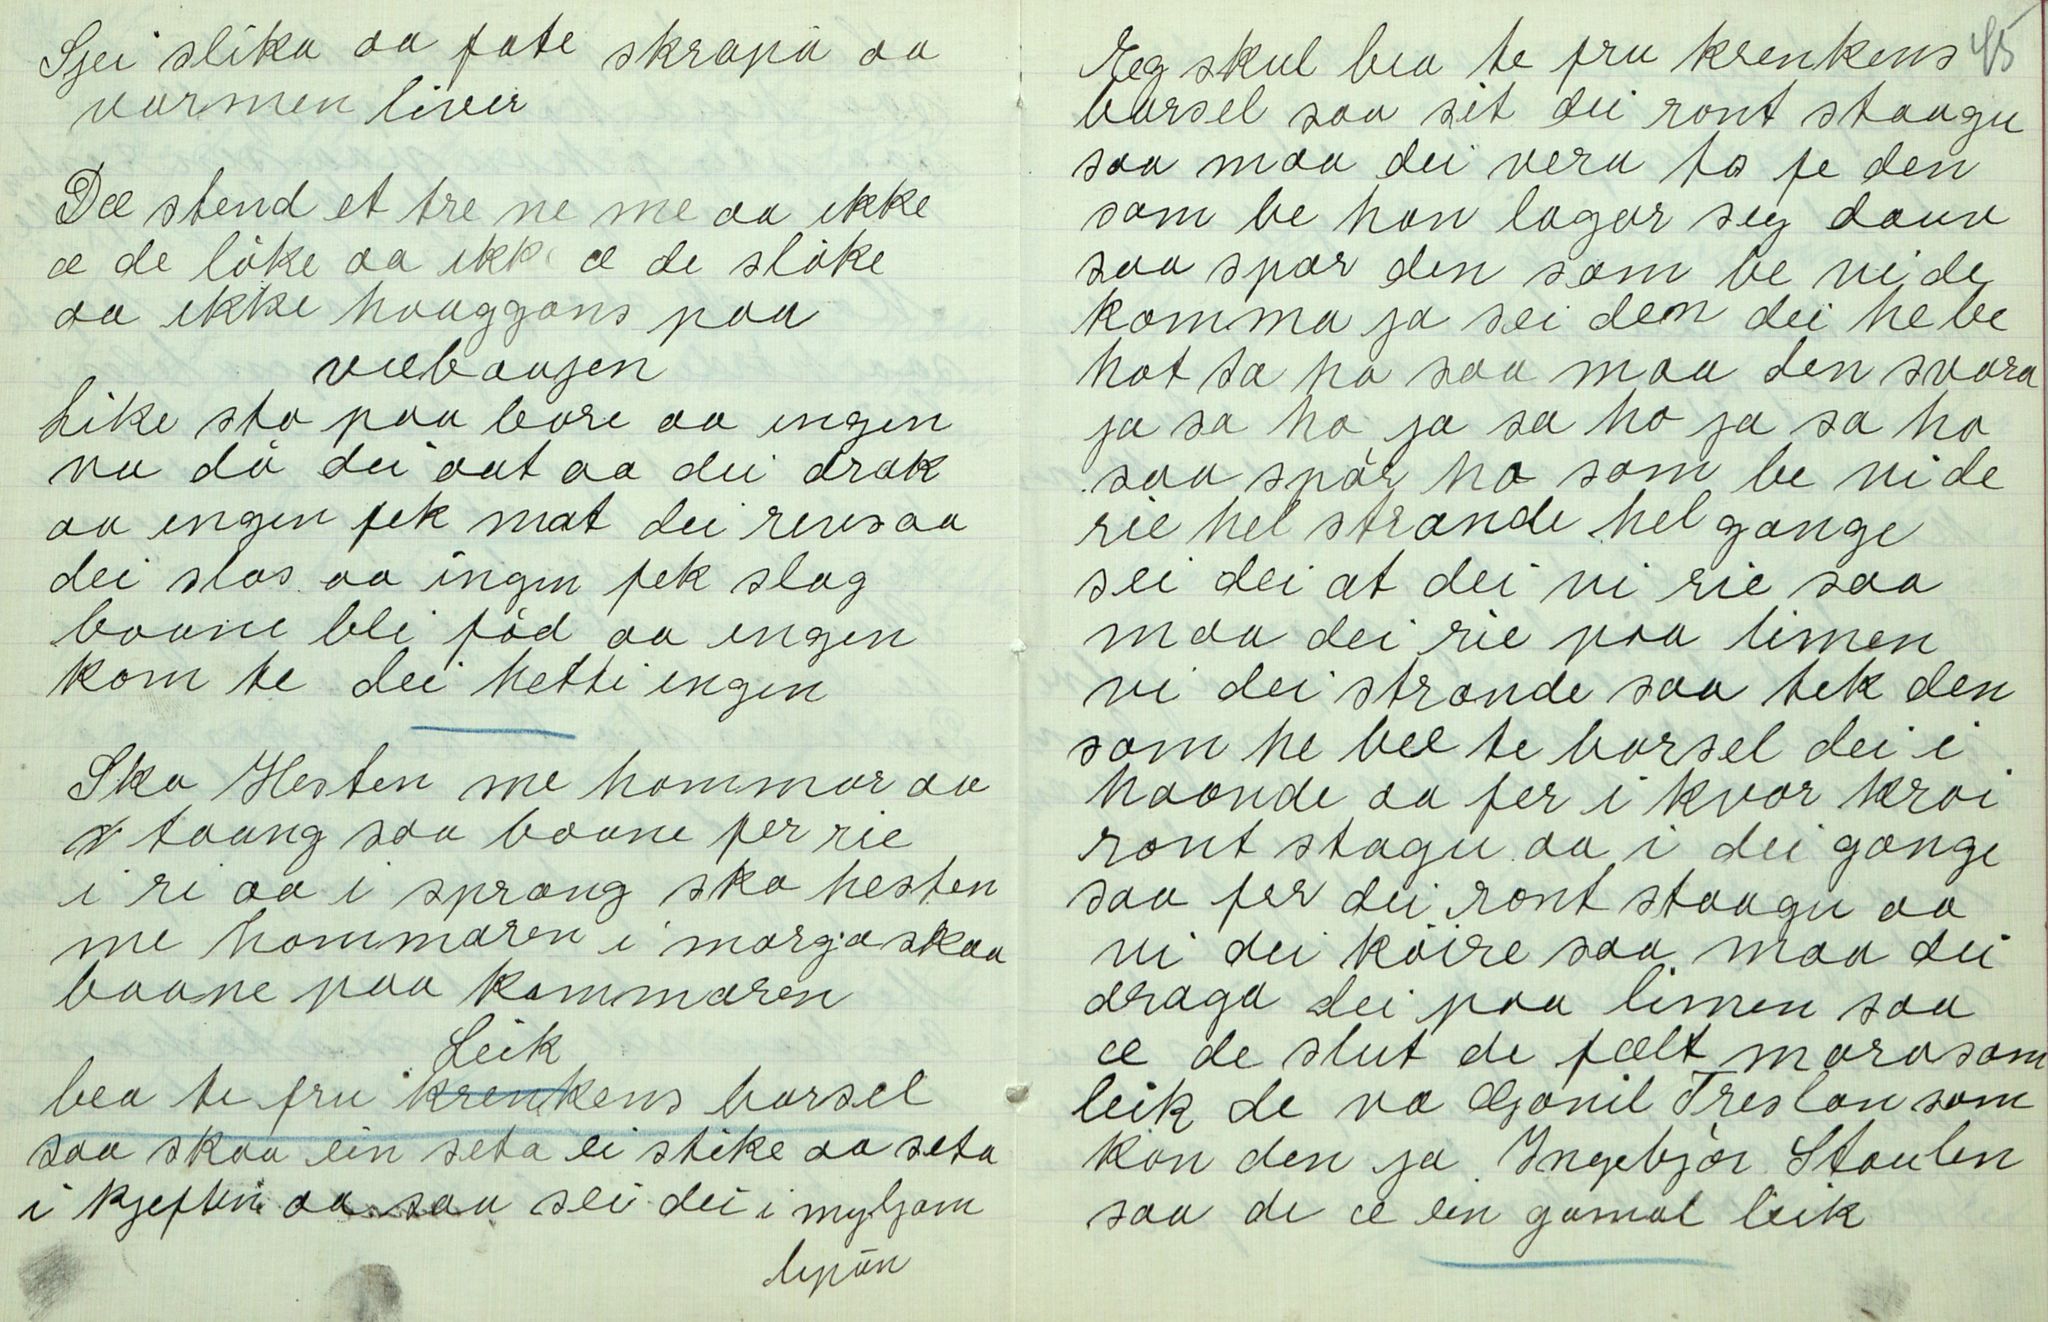 Sjei slika aa fate skrapa aa
varmen liver
Dæ stend et tre ne me aa ikke
æ de löke aa ikke æ de slöke
aa ikke haaggans paa
veebaagen
Like sto paa bore aa ingen
va dö dei aat aa dei drak
aa ingen fek mat dei reiv saa
dei slos aa ingen fek slag
baane blei föd aa ingen
kom te dei hette ingen
Sko Hesten me hommar aa
taang saa baane fer rie
i ri aa i sprang sko hesten
me hommaren i morgo skaa
baane paa kammaren
Leik
bea te fru krenkens barsel
saa skaa ein seta ei stike aa seta
i kjeften aa saa sei dei i myljam
lepön
45
Eeg skul bea te fru krenkens
barsel saa sit dei ront staagu
saa maa dei vera to fe den
som be han lagar seg daur
saa spör den som be vi de
komma ja sei dem dei he be
hot sa ho saa maa den svara
ja sa ho ja sa ho ja sa ho
saa spör ho som be vi de
rie hel strande hel gange
sei dei at dei vi rie saa
maa dei rie paa limen
vi dei strande saa tek den
som he bee te barsel dei i
haande aa fer i kvar kroi
ront stagu aa i dei gange
saa fer dei ront staagu aa
vi dei köire saa maa dei
draga dei paa limen saa
æ de slut de fælt morosam
leik de va Gonil Treslan som
kon den ja Ingebjör Staulen
saa de æ ein gamal leik